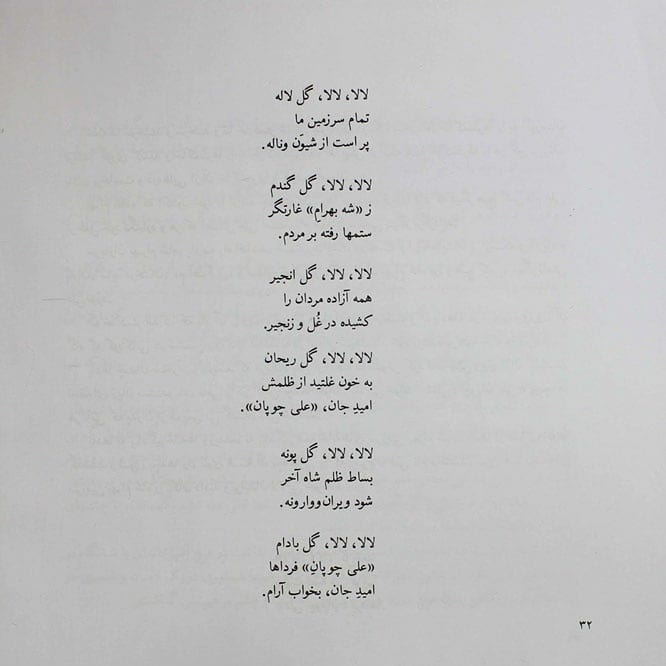 لالا، لالا، گل لاله
تمام سرزمین ما
پر است از شیوَن وناله.
لالا، لالا، گل گندم
ز «شه بهرامِ» غارتگر
ستمها رفته بر مردم.
لالا، لالا، گل انجیر
همه آزاده مردان را
کشیده در غُل و زنجیر.
لالا، لالا، گل ریحان
به خون غلتید از ظلمش
امیدِ جان، «علی چوپان».
لالا، لالا، گل پونه
بساط ظلم شاه آخر
شود ویران‌ووارونه.
لالا، لالا، گل بادام
«علی چوپانِ» فرداها
امیدِ جان، بخواب آرام.
۳۲